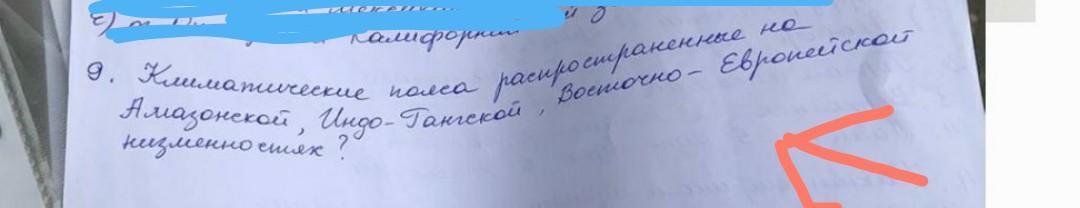 с)
Калифорний
9. Климатические пояса распространенные на
Амазонской, Индо-Гангской, Восточно-Европейской
низменностях?